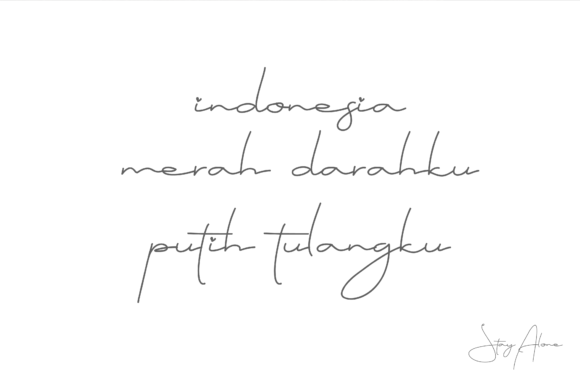 indonesia
merah darahku
putih tulangku
Stay Alone